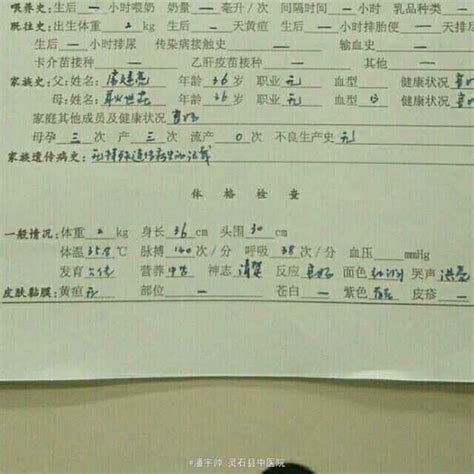 喂养史:生后 一 小时喂奶 奶量 一 毫升/次 间隔时间 一 小时 乳品种类
既往史:出生体重 2 kg 生后 一 天黄疸 生后 一 小时排胎便 一 天排
生后 一 小时排尿 传染病接触史 一 输血史 一
卡介苗接种 一 乙肝疫苗接种 一 其他 一
家族史:父:姓名: 年龄 36 岁 职业 无 血型 健康状况 良好
母:姓名: 年龄 36 岁 职业 无 血型 B 健康状况 良好
家庭其他成员及健康状况 良好
母孕 三 次 产 三 次 流产 0 次 不良生产史 无
家族遗传病史: 无特殊遗传病史
体格检查
一般情况:体重 2 kg 身长 36 cm 头围 30 cm
体温 35.8 ℃ 脉搏 140 次/分 呼吸 38 次/分 血压 mmHg
发育 营养 中等 神志 清楚 反应 良好 面色 红润 哭声 洪亮
皮肤黏膜:黄疸 无 部位 一 苍白 一 紫色 皮疹 一
潘宇帅 灵石县中医院